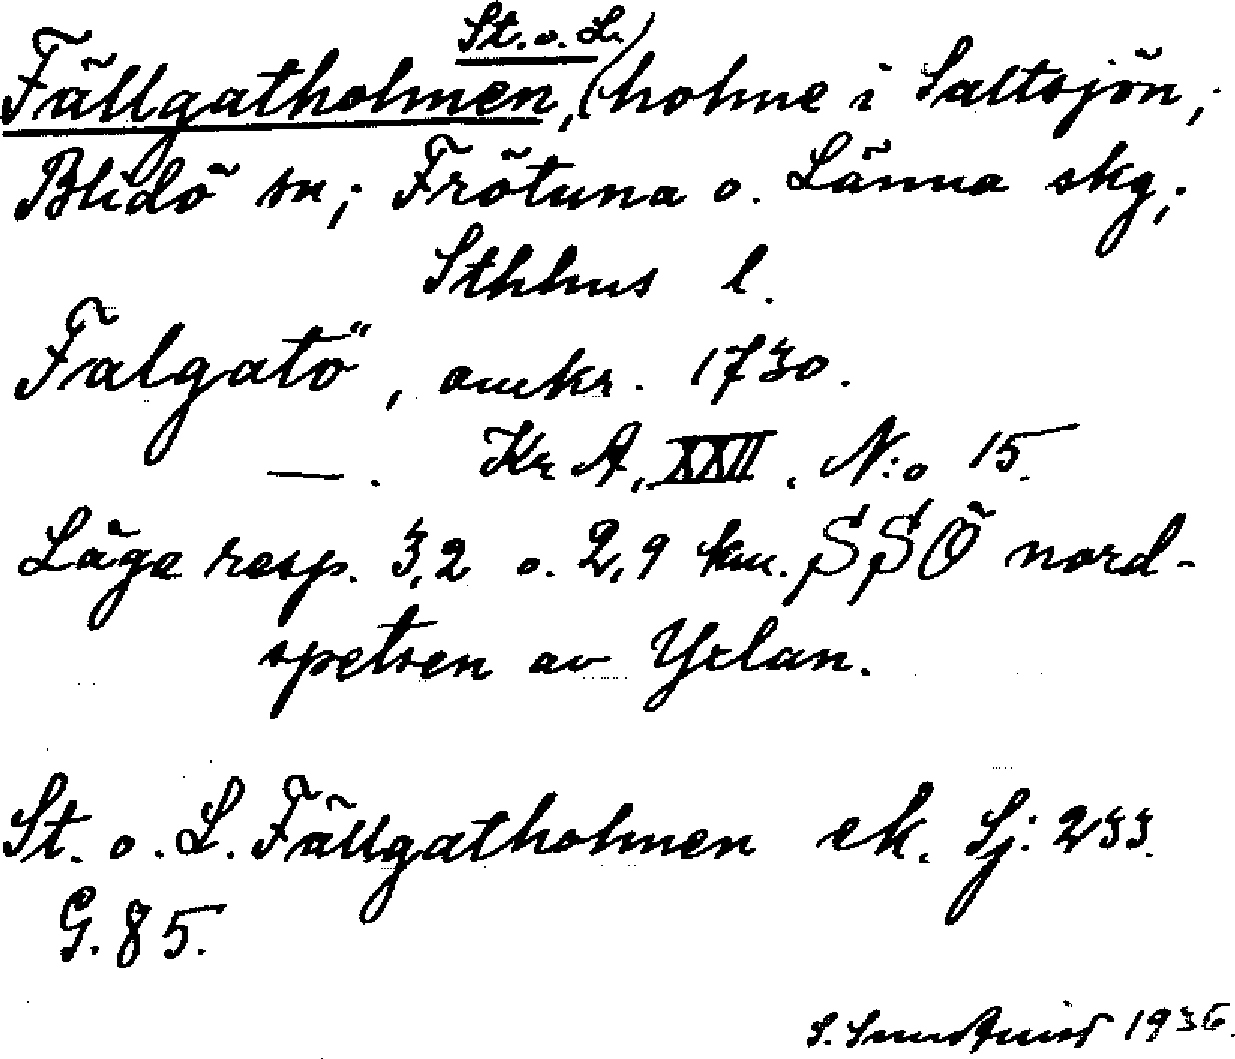 St. o. L.
Fällgatholmen, (holme i Saltsjön;
Blidö sn; Frötuna o. Länna skg;
Sthlms l.
Falgatö", omkr. 1730.
—. Kr A, XXII. N:o 15.
Läge resp. 3,2 o. 2,9 km. SSÖ nord-
spetsen av Yxlan.
St. o. L. Fällgatholmen ek. Sj: 233.
G. 85.
S. 1936.